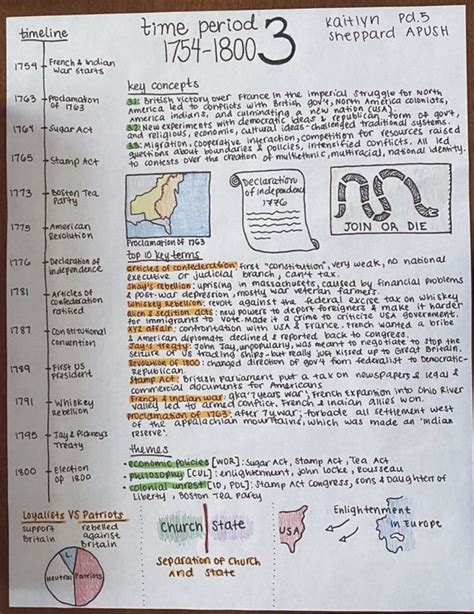 timeline
time period 3
1754-1800
Kaitlyn Pd.5
Sheppard APUSH
1754 French & Indian
War starts
1763 Proclamation
OF 1763
1764 Sugar Act
1765 Stamp Act
1773 Boston Tea
Party
1775 American
Revolution
1776 Declaration of
Independence
1781 Articles of
Confederation
ratified
1787 Constitutional
Convention
1789 First US
President
1791 Whiskey
Rebellion
1795 Jay & Pickney's
Treaty
1800 Election
of 1800
key concepts
3.1: British victory over France in the imperial struggle for North
America led to conflicts with British gov't, North America colonists,
America indians, and culminating a new nation (USA).
3.2: New experiments with democratic ideas & republican form of gov't,
and religious, economic, cultural ideas - challenged traditional systems.
3.3: Migration, cooperative interaction, competition for resources raised
questions about boundaries & policies, intensified conflicts. All led
to contests over the creation of multiethnic, multiracial, national identity.
Proclamation OF 1763
Declaration
of independence
1776
JOIN OR DIE
top 10 key terms
articles of confederation: first "constitution", very weak, no national
executive or judicial branch, can't tax.
Shay's rebellion: uprising in massachusetts, caused by financial problems
& post-war depression, mostly war veteran farmers.
Whiskey Rebellion: revolt against the federal excise tax on whiskey
Alien & sedition acts: new powers to deport foreigners & make it harder
for immigrants to vote. Made it a crime to criticize USA government.
XYZ affair: confrontation with USA & France. French wanted a bribe
& American diplomats declined & reported back to congress.
Jay's treaty: John Jay, unpopular, was meant to negotiate to stop the
seizure of US trading ships - but really just kissed up to Great Britain.
Revolution of 1800: changed direction of gov't from federalist to Democratic-
Republican.
Stamp Act: British Parliament put a tax on newspapers & legal &
commercial documents for Americans
French & Indian war: aka '7years war'; French expansion into Ohio River
valley led to armed conflict. French & indian allies won.
proclamation of 1763: after 7y war; forbade all settlement west
of the appalachian mountains, which was made an 'indian
reserve'.
themes
• economic policies [WOR]: Sugar Act, Stamp Act, Tea Act
• philosophy [CUL]: enlightenment, John Locke, Rousseau
• colonial unrest [ID, POL]: Stamp Act Congress, sons & Daughter of
Liberty, Boston Tea Party
Loyalists VS Patriots
support
Britain
rebelled
against
Britain
L.
Neutral
Patriots
church state
Separation of Church
And State
USA
Enlightenment
in Europe